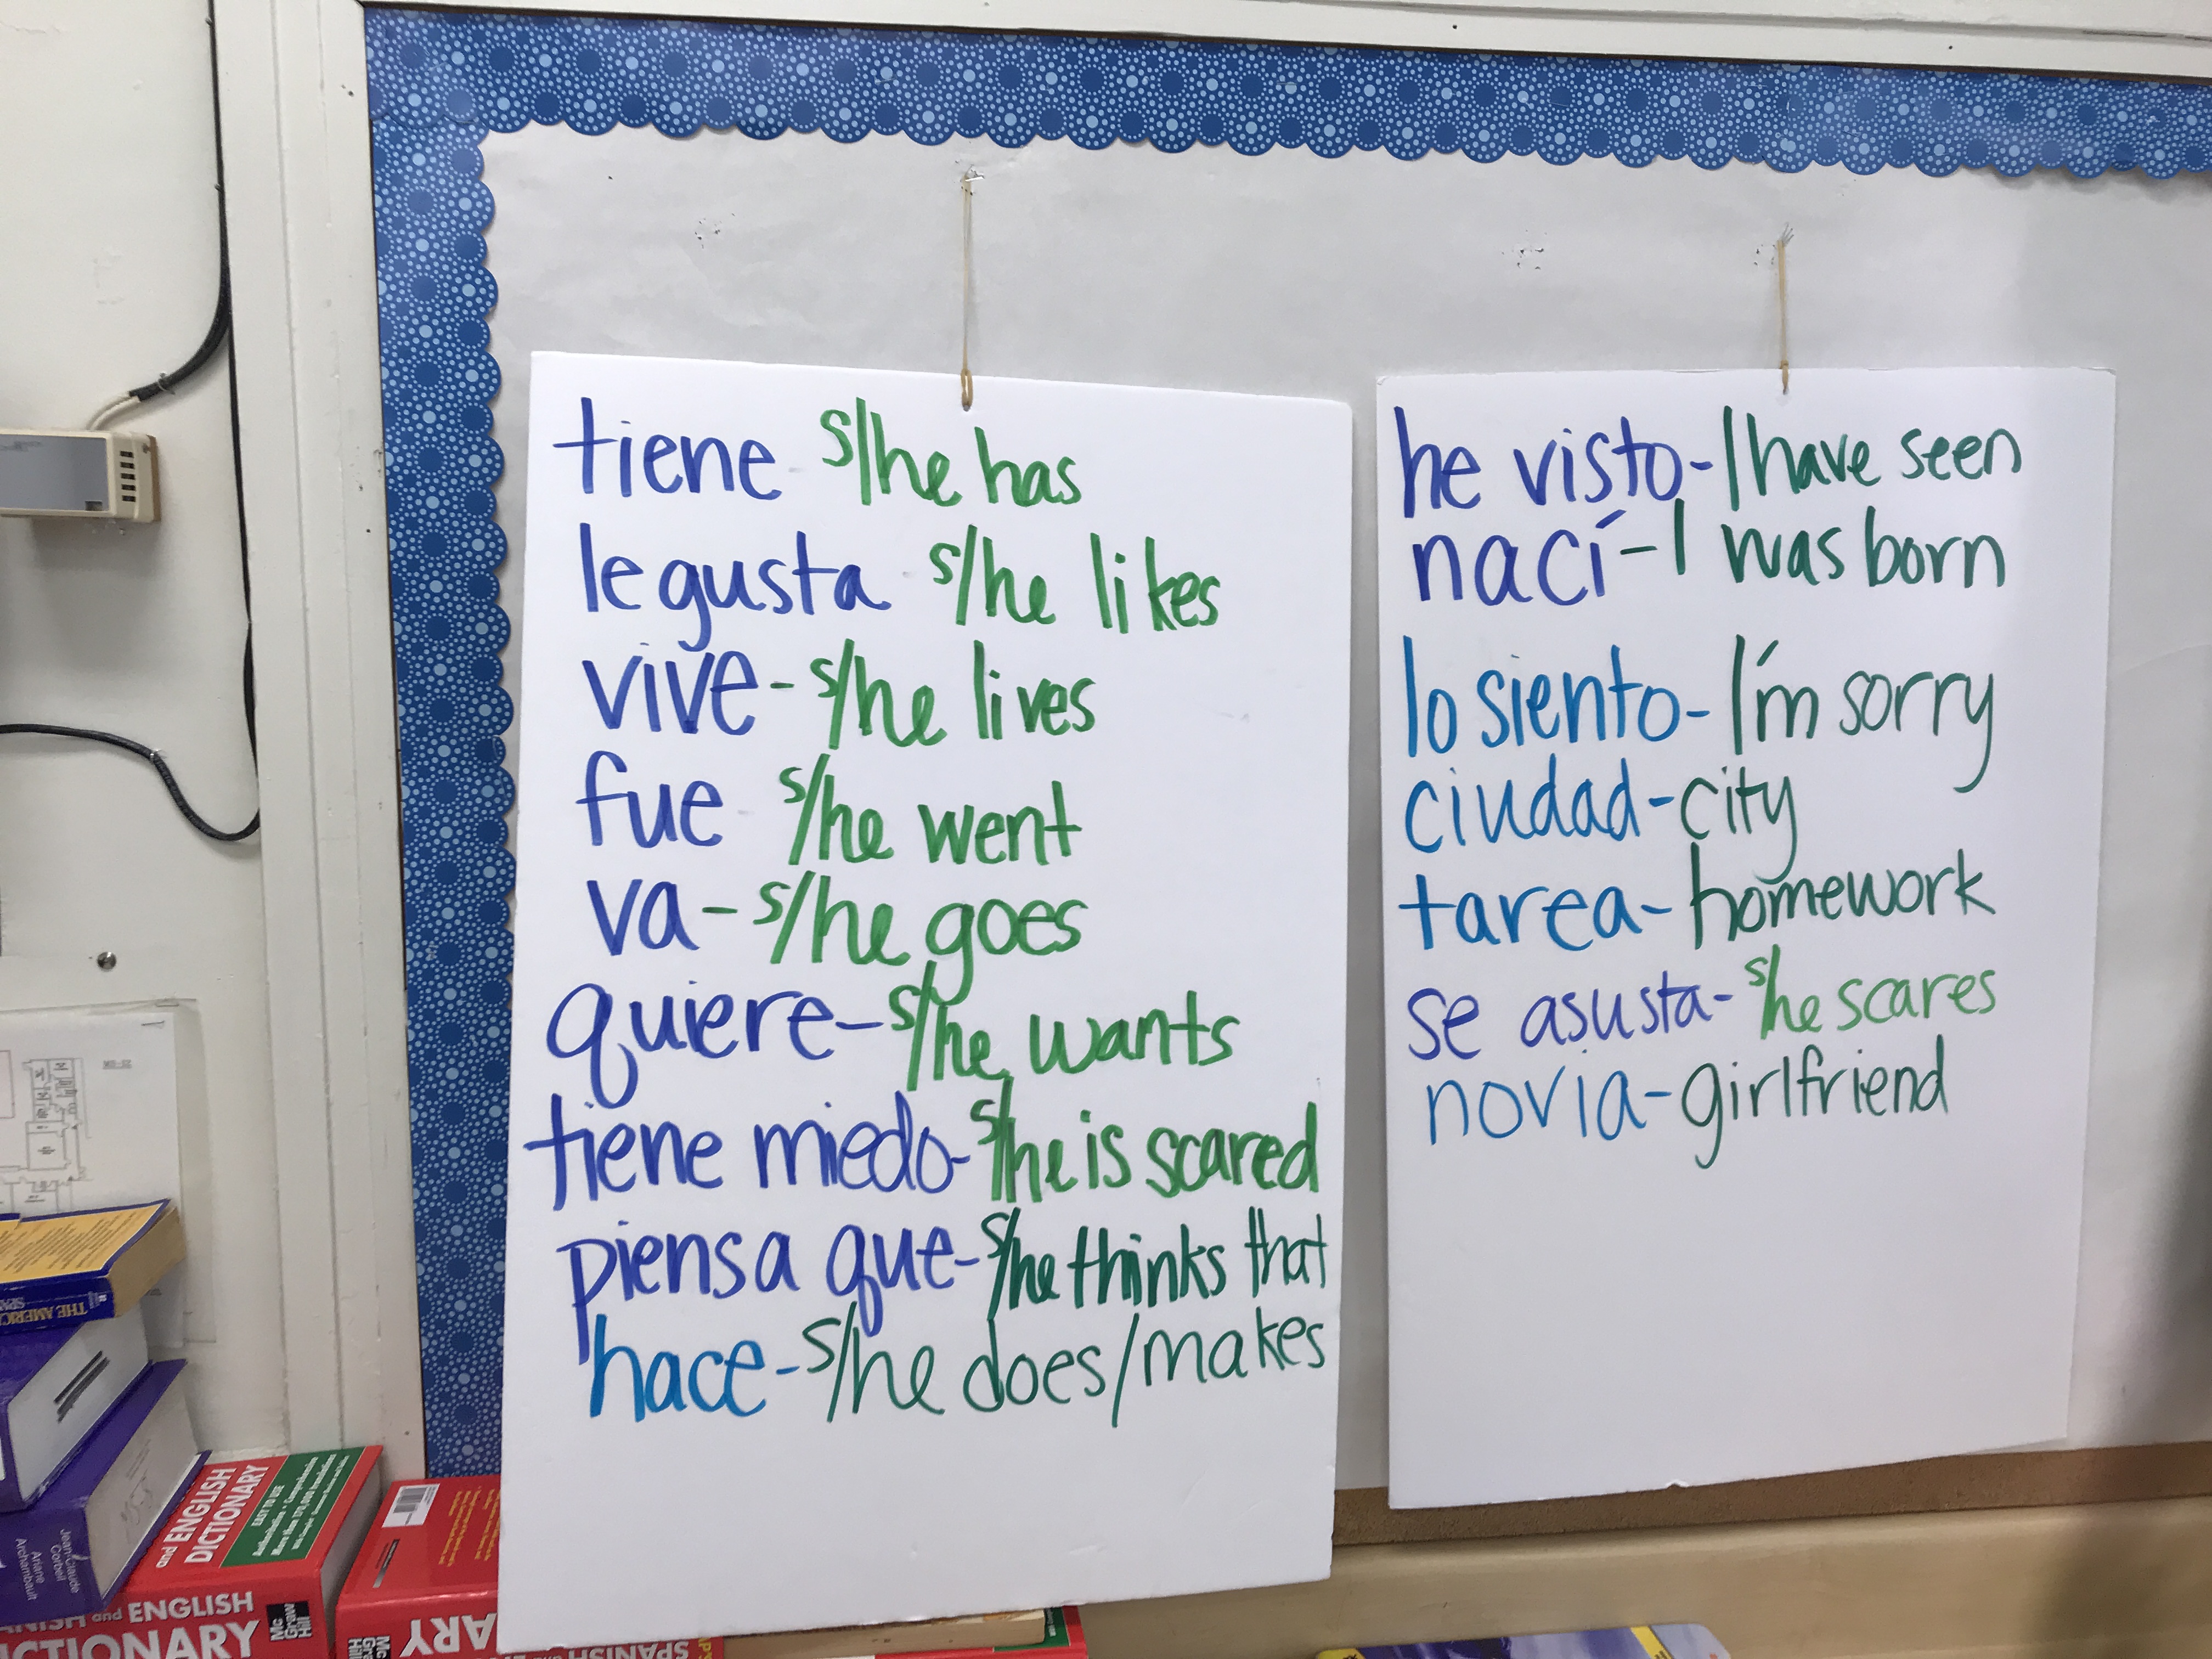 tiene - s/he has
le gusta - s/he likes
vive - s/he lives
fue s/he went
va - s/he goes
quiere - s/he wants
tiene miedo - s/he is scared
piensa que - s/he thinks that
hace - s/he does/makes
he visto - I have seen
nací - I was born
lo siento - I'm sorry
ciudad - city
tarea - homework
se asusta - s/he scares
novia - girlfriend
THE AMERIC
SPAN
Jean-Claude
Corbeil
Ariane
Archambault
and ENGLISH
DICTIONARY
EASY TO USE
and ENGLISH
ICTIONARY
Mc
Graw
Hill
ARY
SPANISH